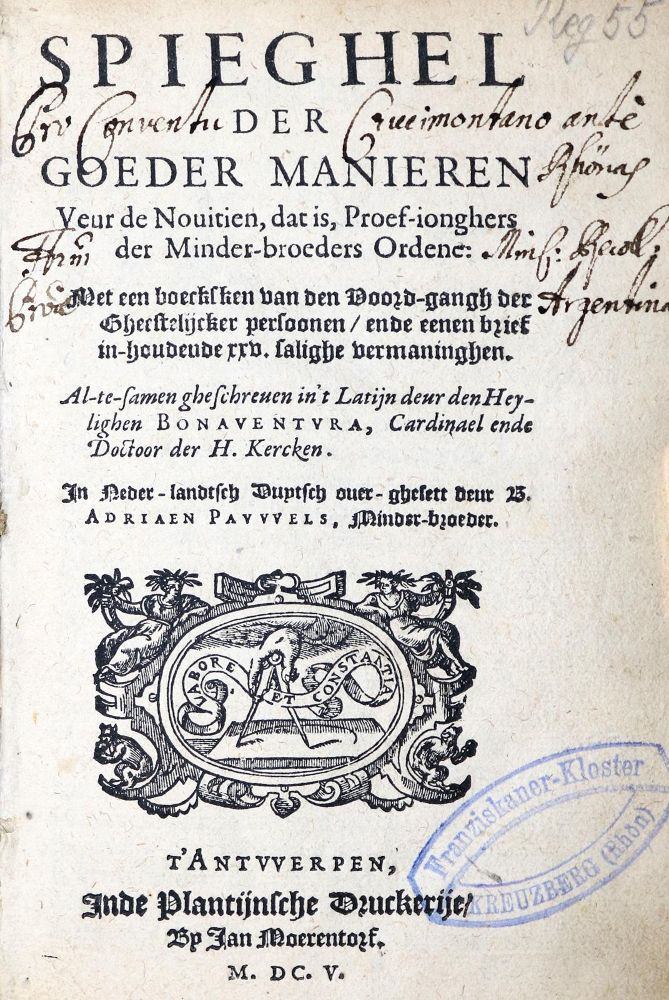 Reg 55
SPIEGHEL
Pro Conventu DER Crucimontano ante
GOEDER MANIEREN
Veur de Nouitien, dat is, Proef-ionghers
der Minder-broeders Ordene:
Met een boecksken van den Voord-gangh der Argentina
Gheestelijcker persoonen / ende eenen brief
in-houdende xxv. salighe vermaninghen.
Al-te-samen gheschreuen in't Latijn deur den Hey-
lighen BONAVENTVRA, Cardinael ende
Doctoor der H. Kercken.
In Neder-landtsch Duytsch ouer-ghesett deur B.
ADRIAEN PAVVVELS, Minder-broeder.
LABORE ET CONSTANTIA
T'ANTVVERPEN,
Inde Plantijnsche Druckerije/
By Jan Moerentorf.
M. DC. V.
Franziskaner-Kloster
KREUZBERG (Rhön)